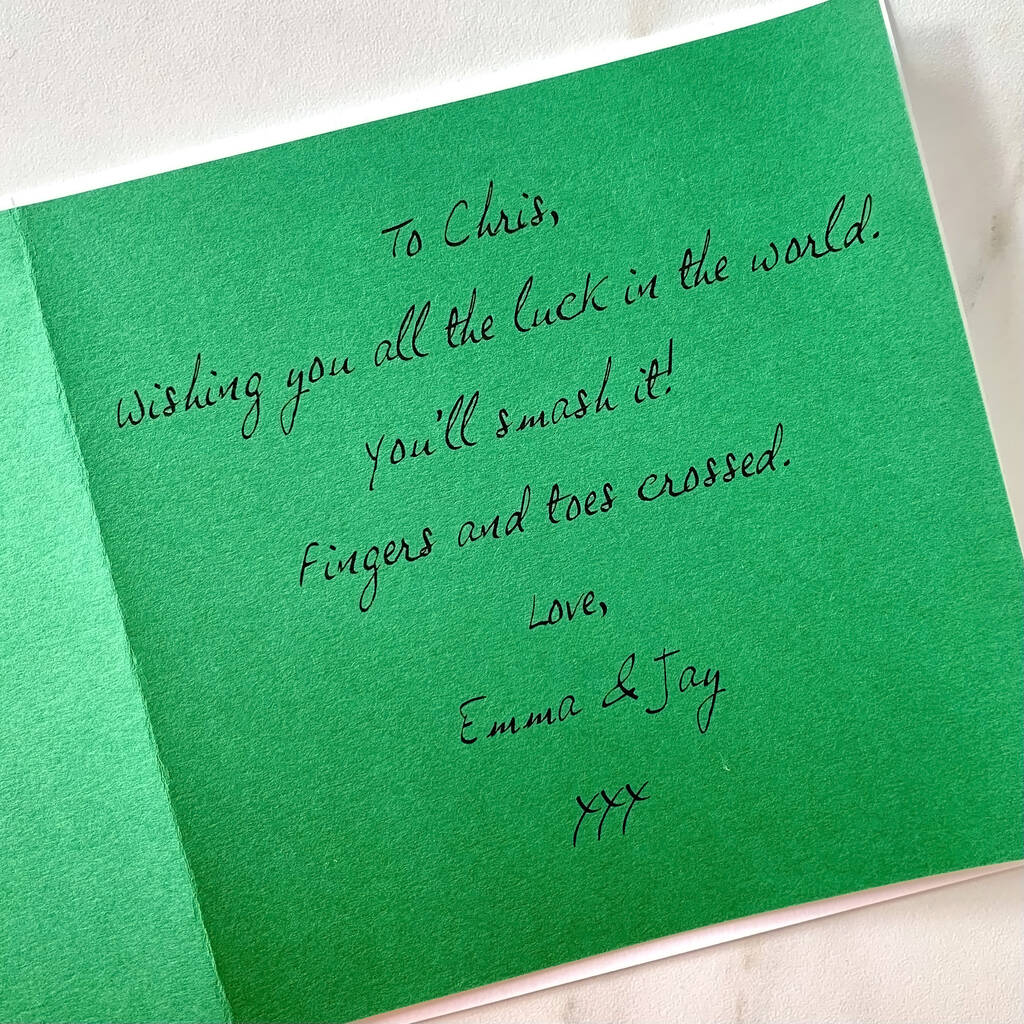 To Chris,
Wishing you all the luck in the world.
You'll smash it!
Fingers and toes crossed.
Love,
Emma & Jay
xxx